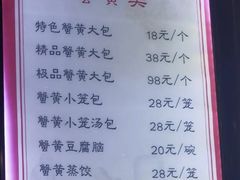 蟹黄类
特色蟹黄大包 18元/个
精品蟹黄大包 38元/个
极品蟹黄大包 98元/个
蟹黄小笼包 28元/笼
蟹黄小笼汤包 28元/笼
蟹黄豆腐脑 20元/碗
蟹黄蒸饺 28元/笼